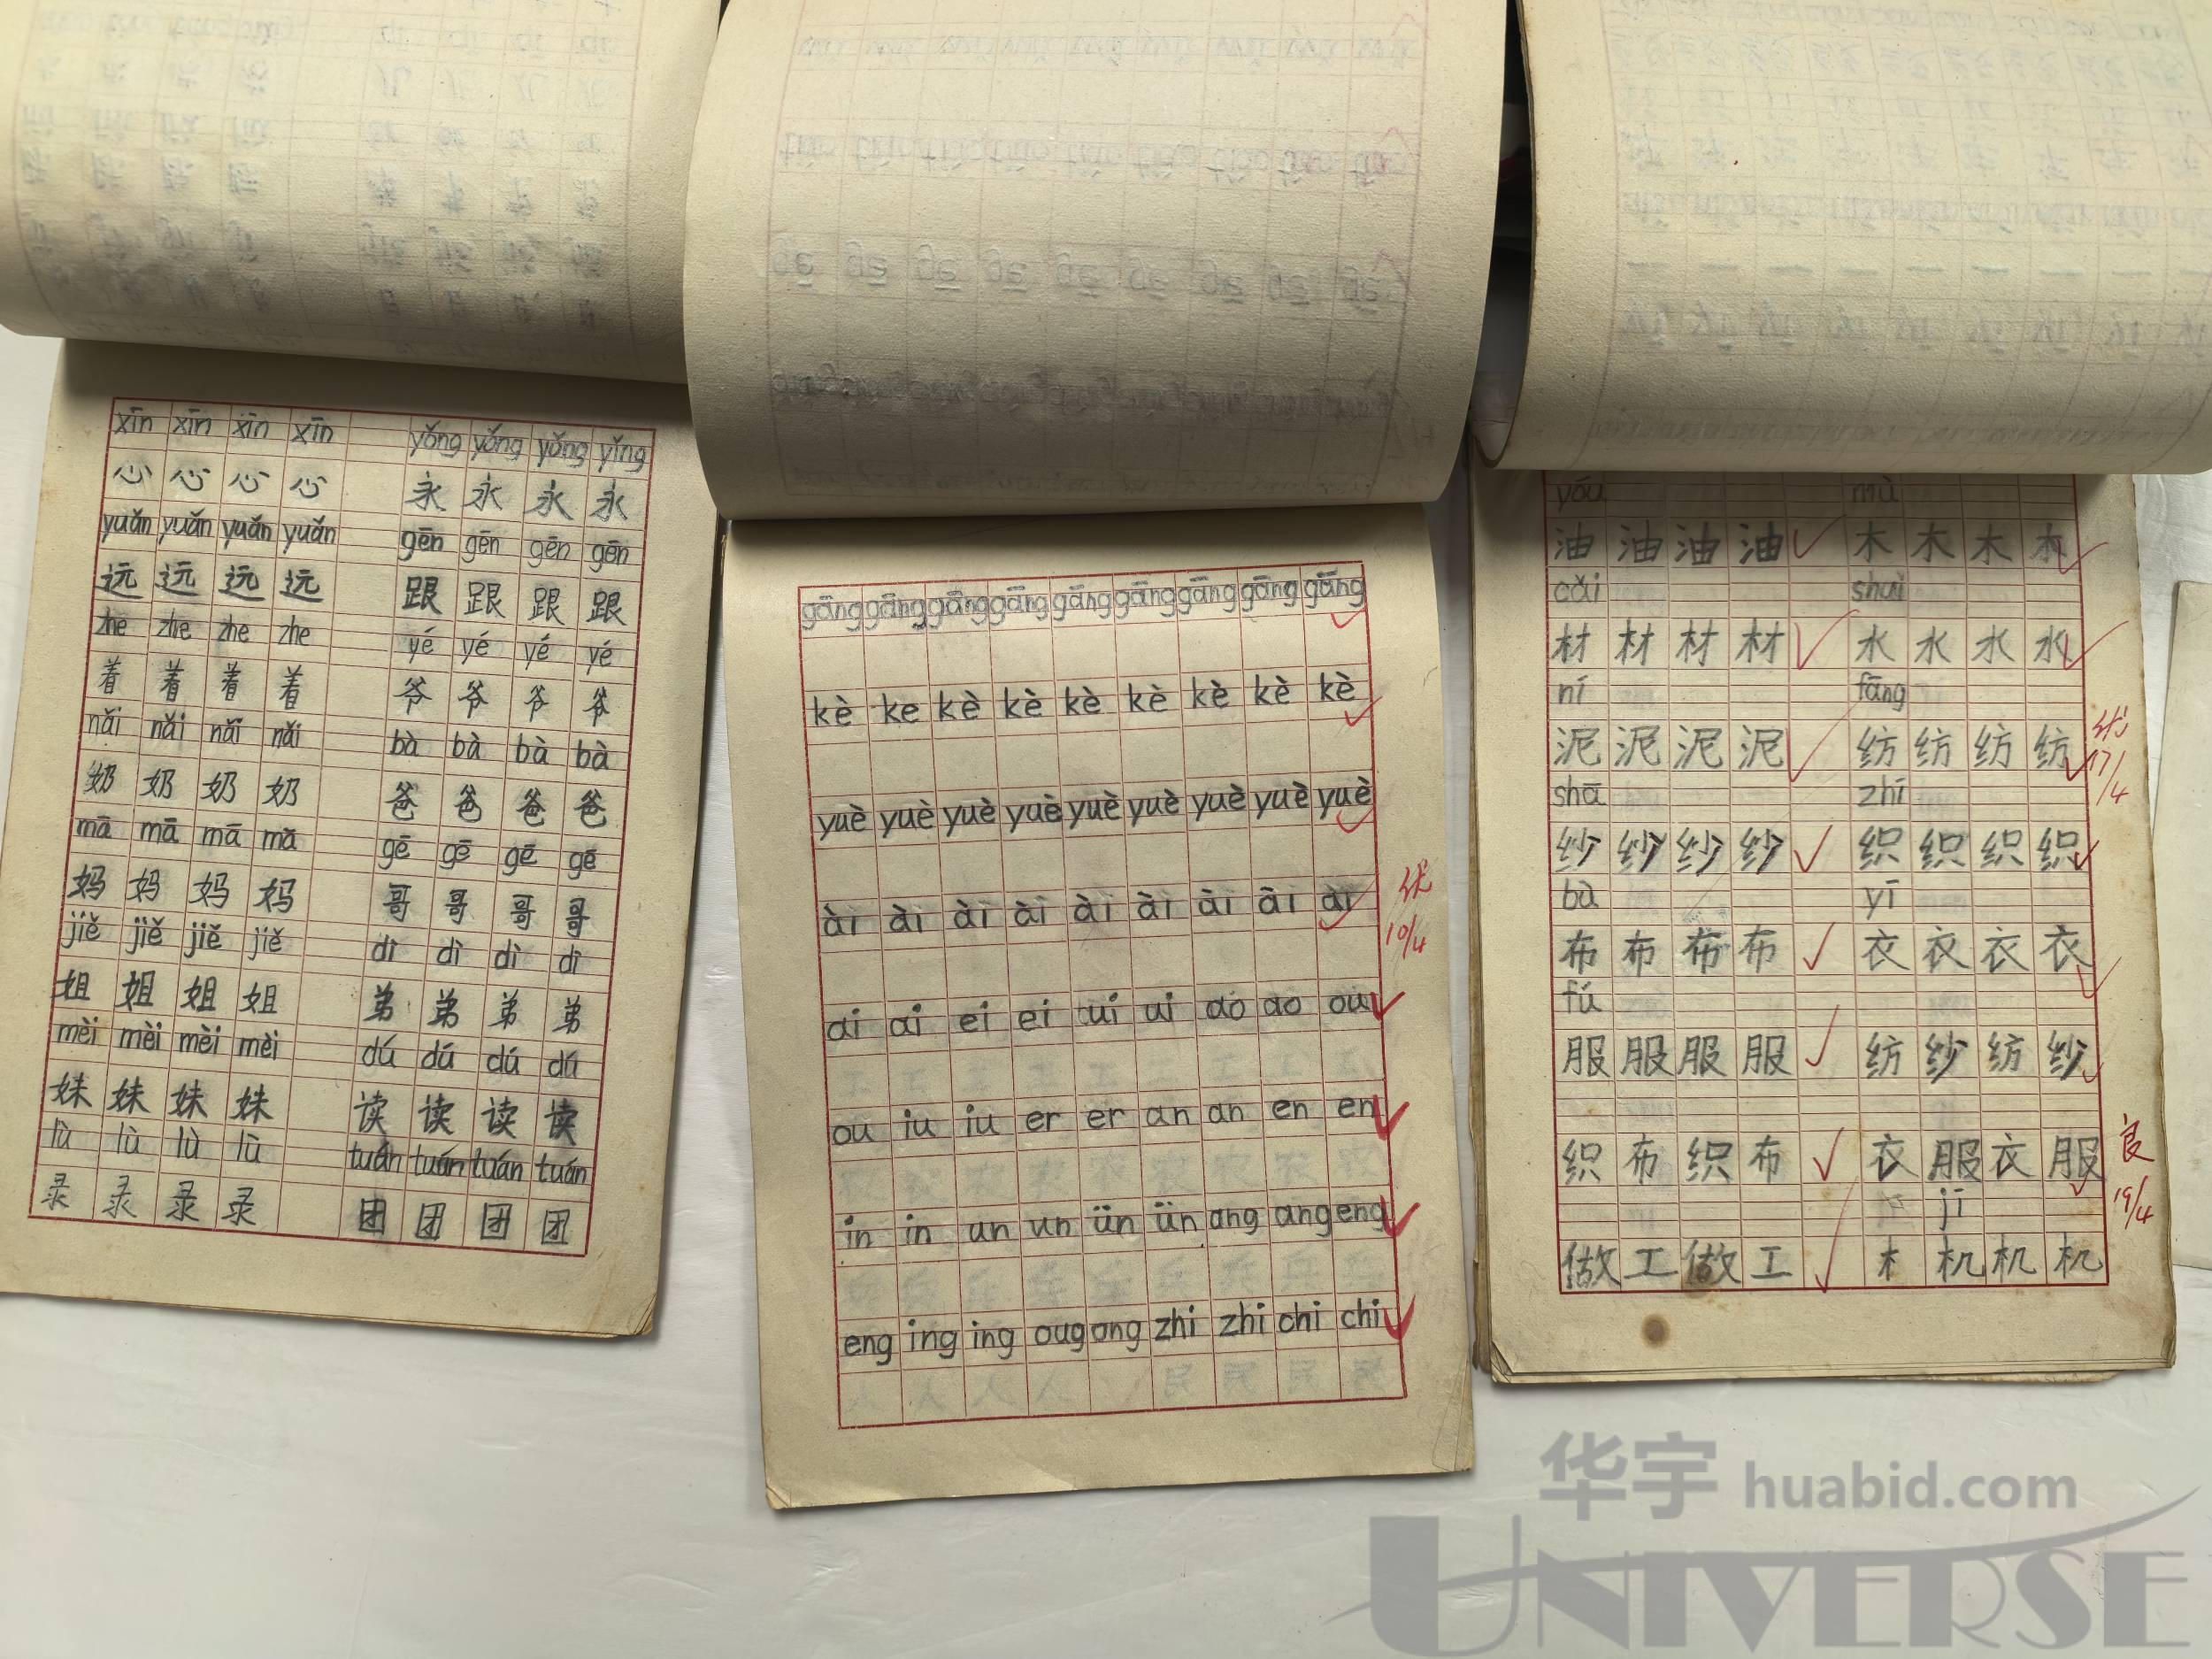 xīn xīn xīn xīn yǒng yǒng yǒng yǐng
心 心 心 心 永 永 永 永
yuǎn yuǎn yuǎn yuǎn gēn gēn gēn gēn
远 远 远 远 跟 跟 跟 跟
zhe zhe zhe zhe yé yé yé yé
着 着 着 着 爷 爷 爷 爷
nǎi nǎi nǎi nǎi bà bà bà bà
奶 奶 奶 奶 爸 爸 爸 爸
mā mā mā mā gē gē gē gē
妈 妈 妈 妈 哥 哥 哥 哥
jiě jiě jiě jiě dì dì dì dì
姐 姐 姐 姐 弟 弟 弟 弟
mèi mèi mèi mèi dú dú dú dú
妹 妹 妹 妹 读 读 读 读
lù lù lù lù tuán tuán tuán tuán
录 录 录 录 团 团 团 团
gāng gāng gāng gāng gāng gāng gāng gāng gāng
kè ke kè kè kè kè kè kè kè
yuè yuè yuè yuè yuè yuè yuè yuè yuè
ài ài ài ài ài ài ài ài ài
优
10/4
ai ai ei ei ui ui ao ao ou
ou iu iu er er an an en en
in in un un ün ün ang ang eng
eng ing ing oug ong zhi zhi chi chi
yóu mù
油 油 油 油 木 木 木 木
cái shuǐ
材 材 材 材 水 水 水 水
ní fāng
泥 泥 泥 泥 纺 纺 纺 纺
优
17/4
shā zhī
纱 纱 纱 纱 织 织 织 织
bù yī
布 布 布 布 衣 衣 衣 衣
fú
服 服 服 服 纺 纱 纺 纱
织 布 织 布 衣 服 衣 服
良
19/4
jī
做 工 做 工 木 机 机 机
华宇 huabid.com
UNIVERSE